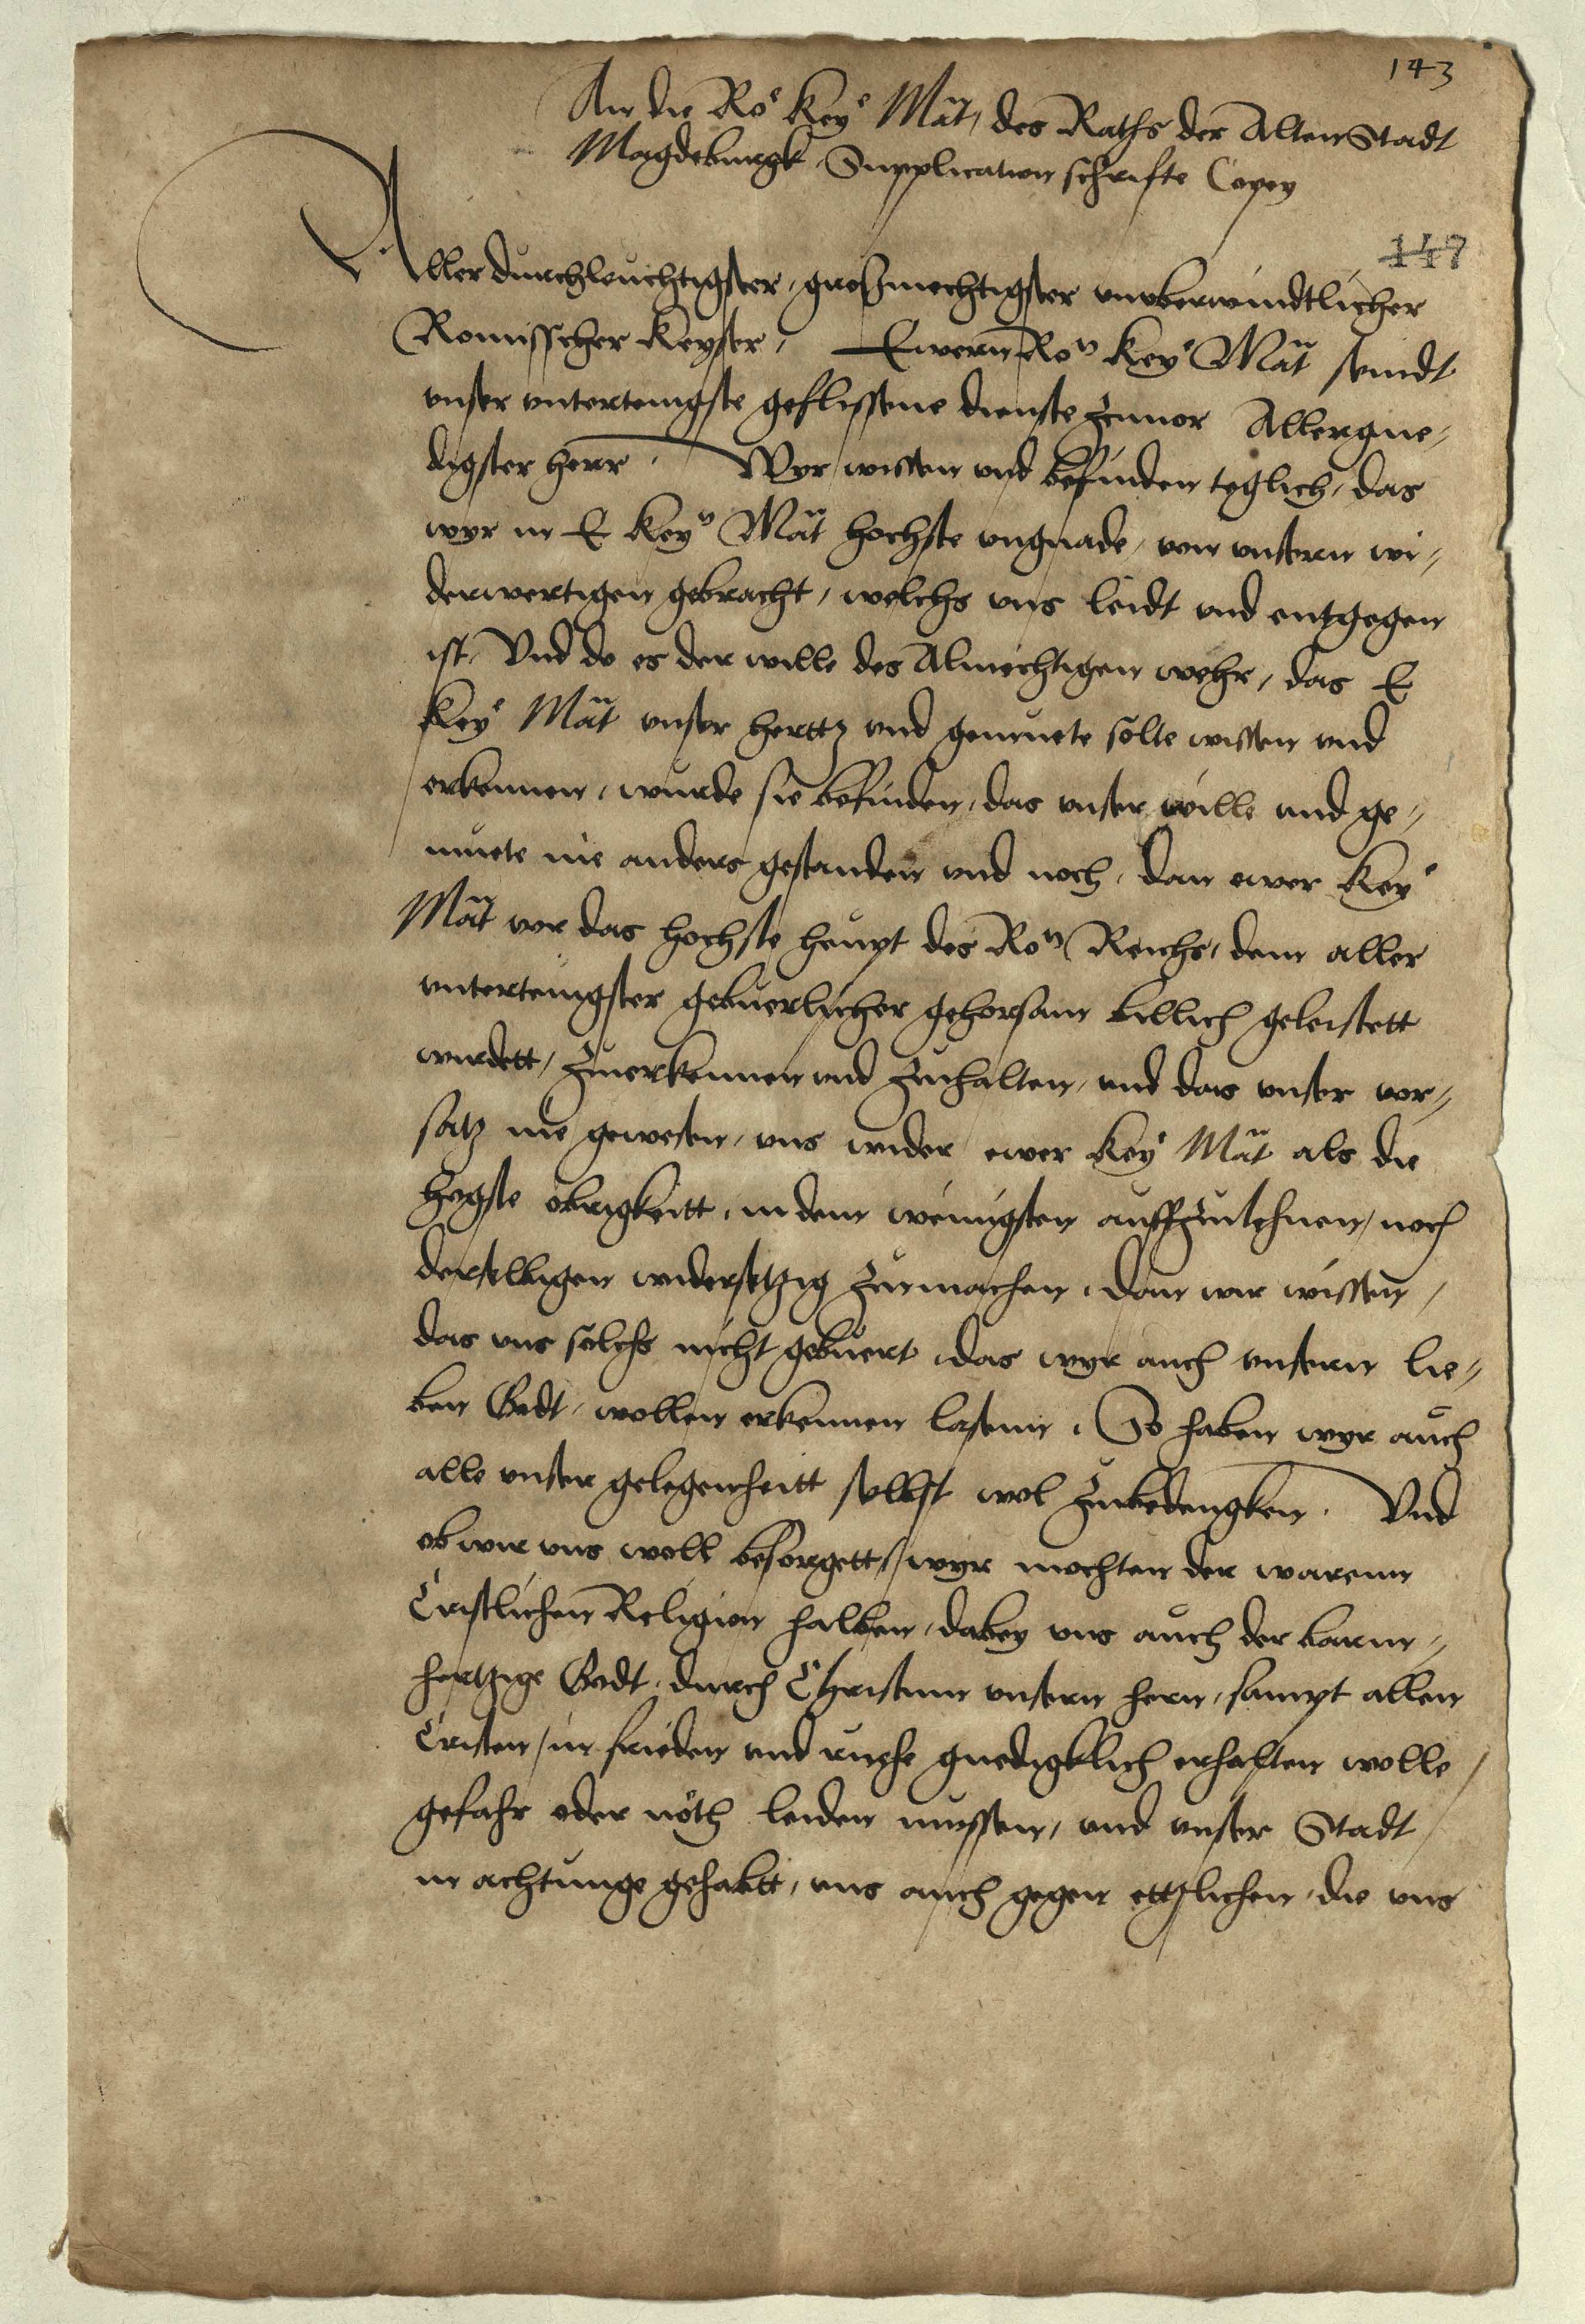 143
An die Ro^e Key^e Mät, des Raths der Alten Stadt
Magdeburgk Supplication schrifte Copey
147
Aller durchleuchtigster, großmechtigster unuberwindtlicher
Romisscher Keyser, Ewern Ro^n Key^e Mät seindt
unser untertenigste geflissene dienste zuuor Allergne„
digster herr. Wyr wissen und befinden teglich, das
wyr in E Key^n Mät hochste ungnade, von unsern wi„
derwertigen gebracht, welchs uns leidt und entgegen
ist, Und do es der wille des Almechtigen wehr, das E
Key^e Mät unser herttz und gemuete solte wissen und
erkennen, wurde sie befinden, das unser wille und ge„
muete nie anders gestanden und noch, dan ewer Key^e
Mät vor das hochste heupt des Ro^n Reichs, dem aller
untertenigster geburlicher gehorsam billich geleistett
wirdett, zuerkennen und zuhalten, und das unser vor„
satz nie gewesen, uns wider ewer Key^e Mät als die
hogste obrigkeitt, in dem wenigsten auffzulehnen, noch
derselbigen widersetzig zumachen, dan wir wissen,
das uns solchs nicht gebuert, das wyr auch unsern lie„
ben Godt, wollen erkennen lassenn, So haben wyr auch
alle unser gelegenheitt selbst wol zubedengken. Und
ob wir uns woll besorgett, wyr mochten der warenn
Cristlichen Religion halben, dabey uns auch der barm„
hertzige Godt, durch Christum unsern hern, sampt allen
Cristen, in frieden und ruehe gnedigklich erhalten wolle,
gefahr oder nöth leiden mussen, und unser Stadt
in achtunge gehabtt, uns auch gegen ettzlichen, die uns